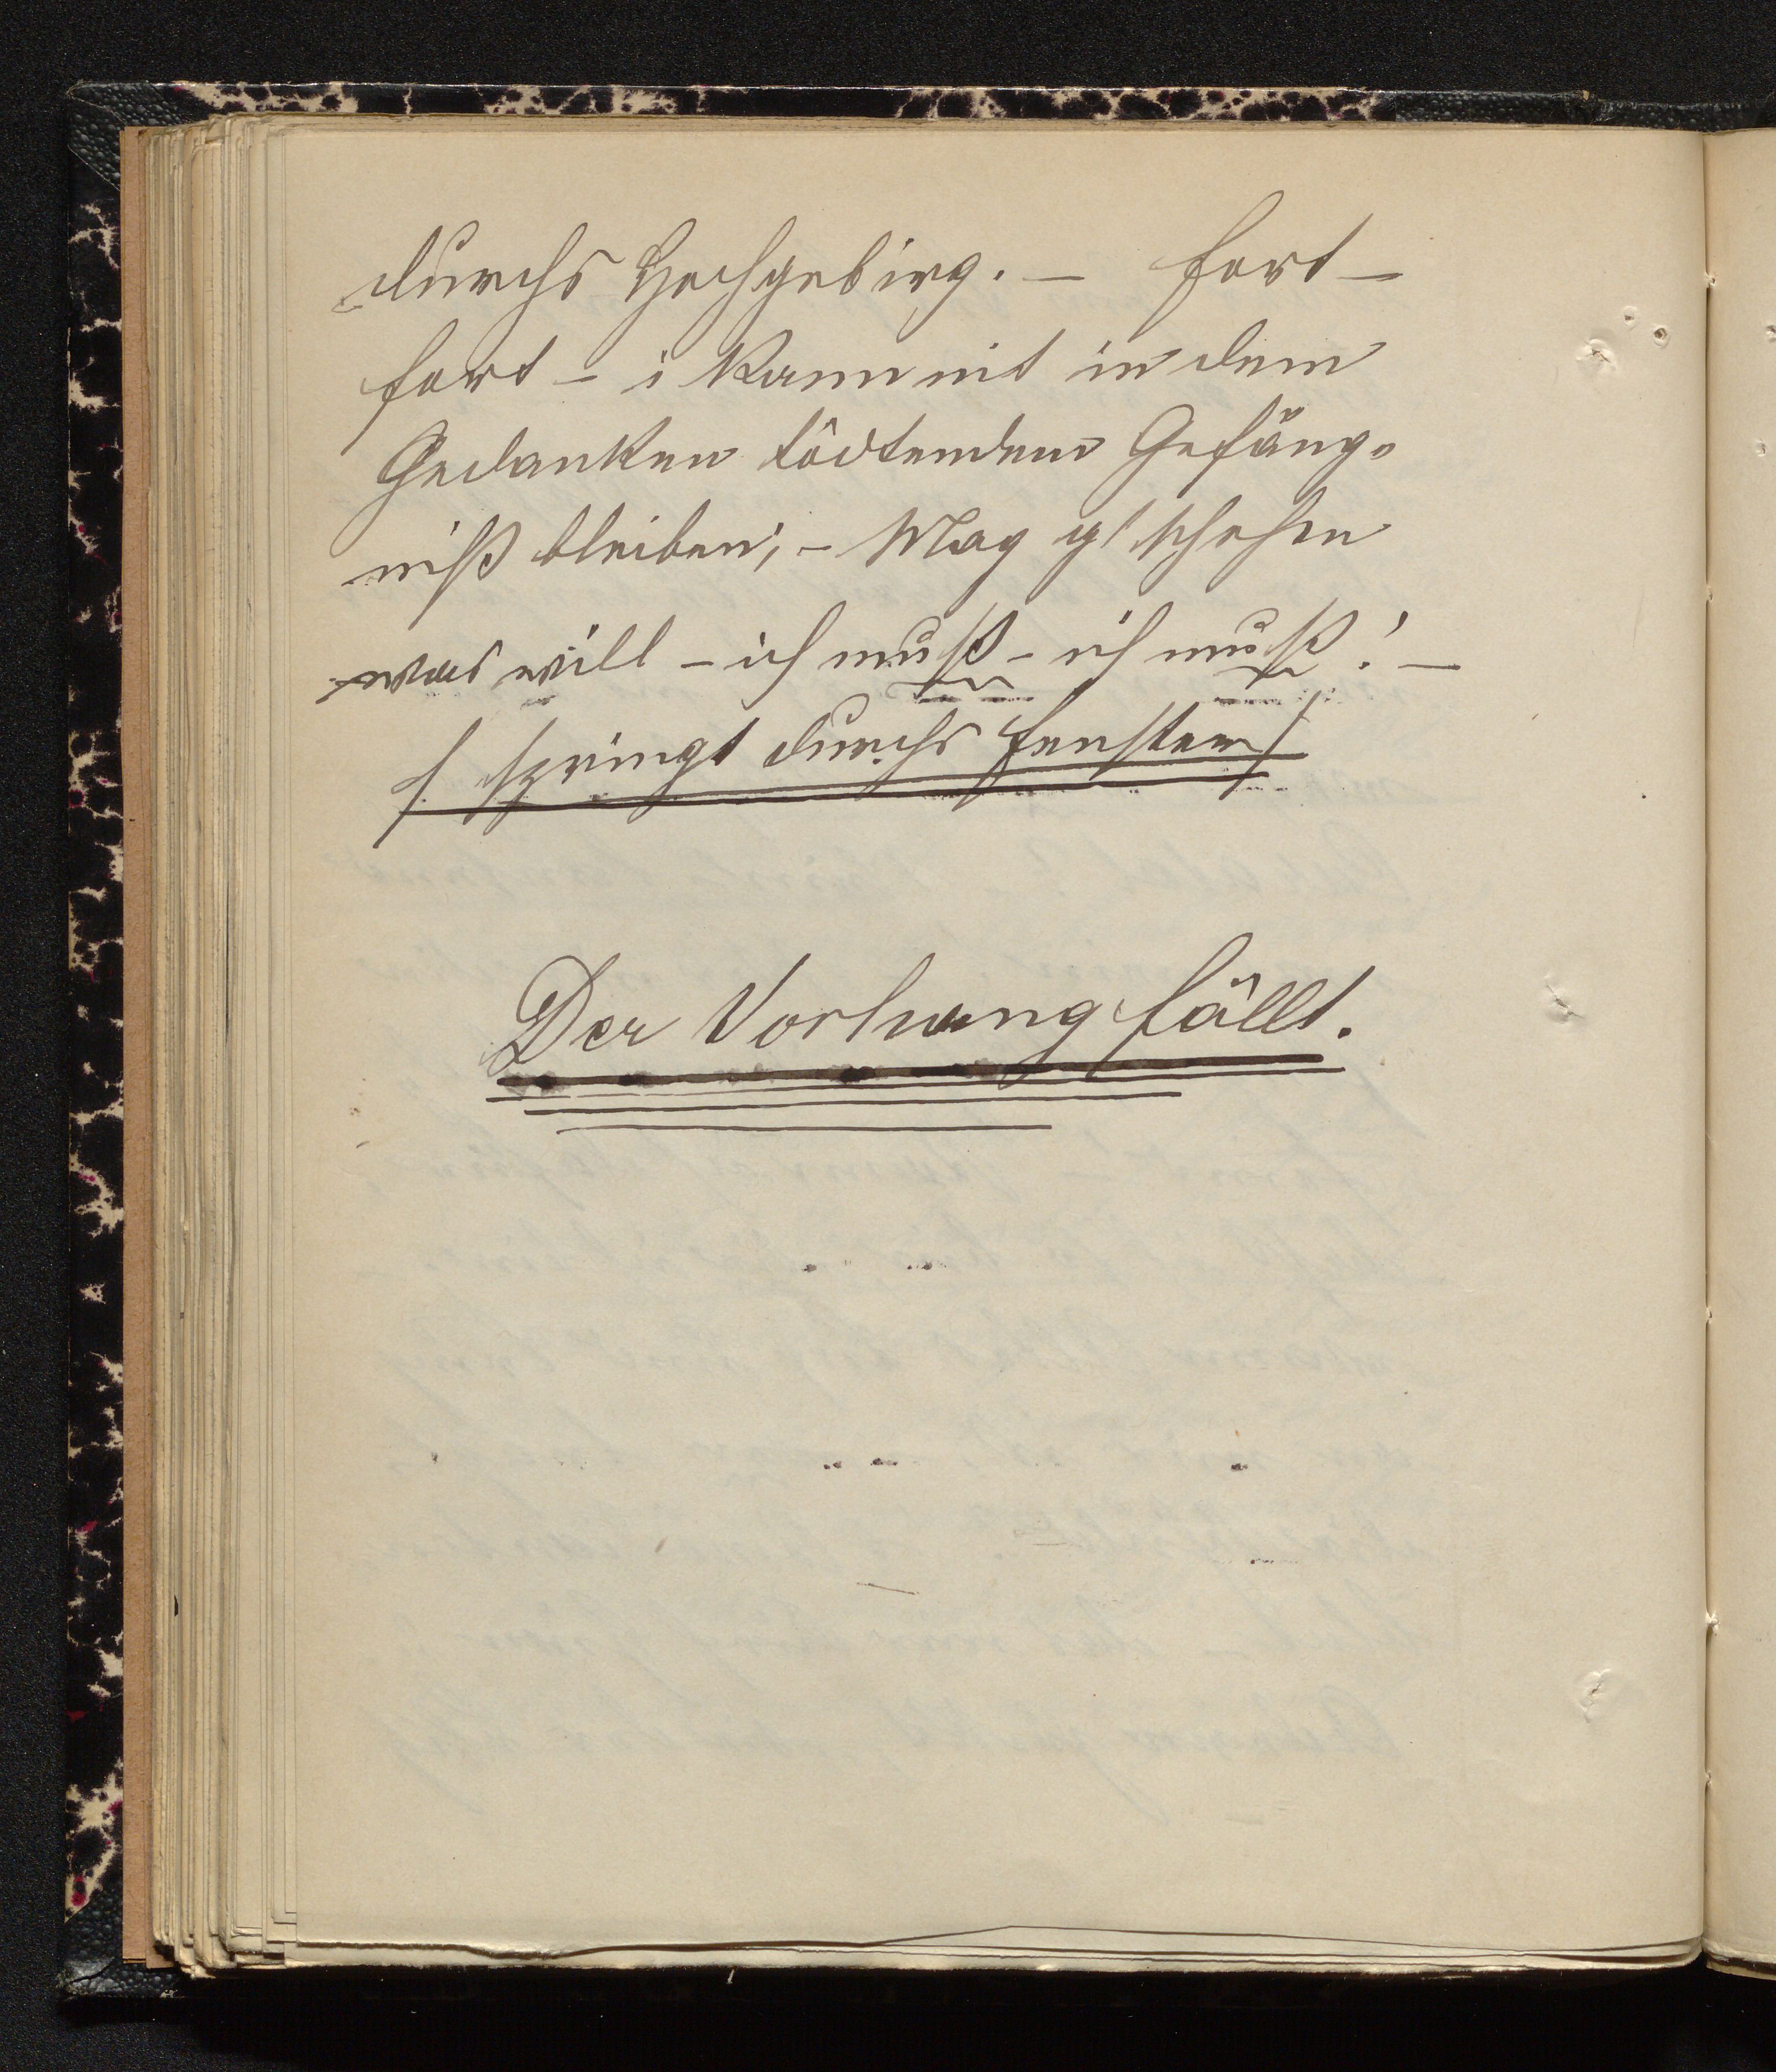 durchs Hochgebirg. – fort –
fort – i kann nit in dem
Gedanken tödtendem Gefäng-
niß bleiben; – Mag g'schehen
was will – ich muß – ich muß! –
/ springt durchs Fenster /
Der Vorhang fällt.